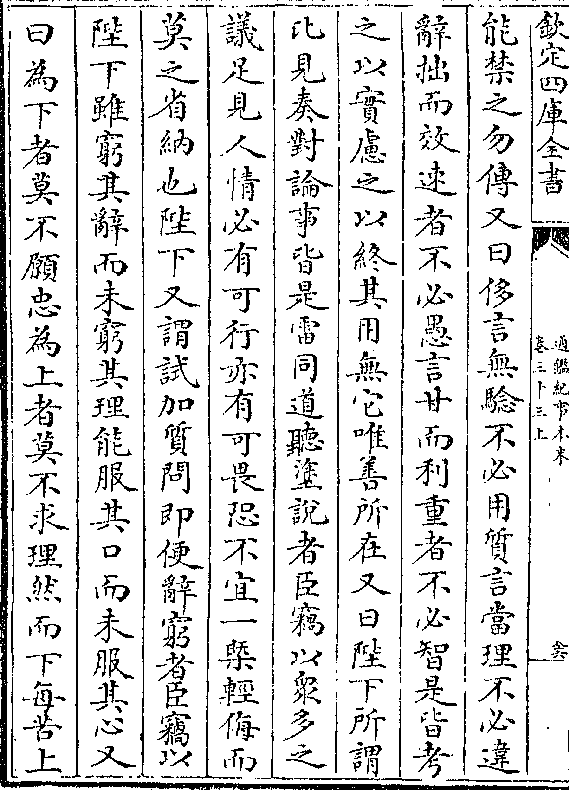 欽定四庫全書
通鑑紀事本末
卷三十三上
能禁之勿傳又曰侈言無驗不必用質言當理不必違
辭拙而效速者不必愚言甘而利重者不必智是皆考
之以實慮之以終其用無它唯善所在又曰陛下所謂
比見奏對論事皆是雷同道聽塗說者臣竊以衆多之
議足見人情必有可行亦有可畏恐不宜一槩輕侮而
莫之省納也陛下又謂試加質問即便辭窮者臣竊以
陛下雖窮其辭而未窮其理能服其口而未服其心又
曰為下者莫不願忠為上者莫不求理然而下每苦上